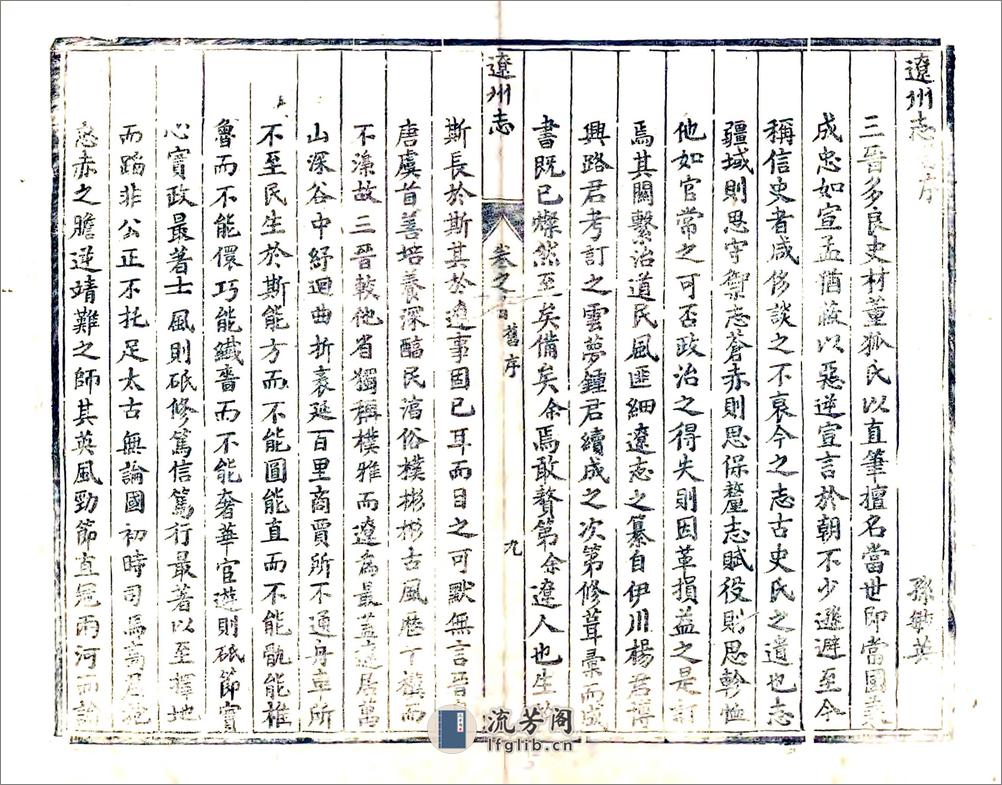 遼州志 序 孫毓英
三晉多良史材董狐氏以直筆擅名當世即當國
成忠如宣孟猶蔽以惡逆宣言於朝不少遜避至今
稱信史者咸侈談之不衰今之志古史氏之遺也志
疆域則思守禦志蒼赤則思保釐志賦役則思軫恤
他如官常之可否政治之得失則因革損益之是訂
焉其關繫治道民風匪細遼志之纂自伊川楊君博
興路君考訂之雲夢鍾君續成之次第修葺彙而成
書既已燦然至矣備矣余焉敢贅第余遼人也生於
遼州志 卷之首 舊序 九
斯長於斯其於遼事固已耳而目之可默無言晉
唐虞首善培養深醞民淳俗樸彬彬古風歷了樸而
不漓故三晉較他省獨稱樸雅而遼為最蓋遼居萬
山深谷中紆迴曲折袤延百里商賈所不通舟車所
不至民生於斯能方而不能圓能直而不能骫能椎
魯而不能儇巧能纖嗇而不能奢華官遊則砥節實
心實政最著士風則砥修篤信篤行最著以至擇地
而蹈非公正不托足太古無論國初時司馬高
赤之膽逆靖難之師其英風勁節直冠兩河而論
流芳阁
lfglib.cn